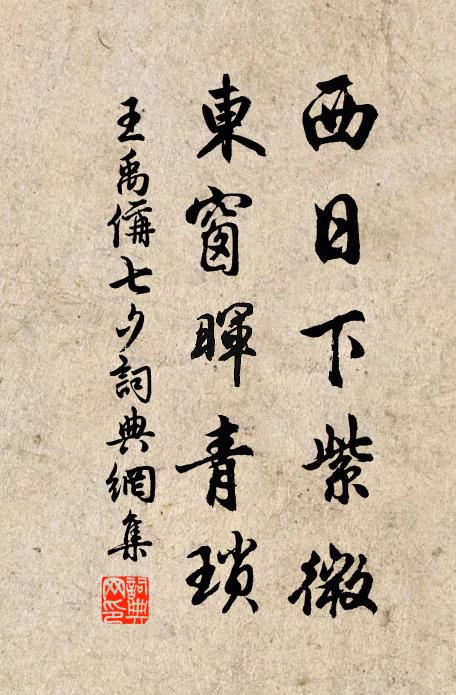 西日下紫微
東窗暉青瑣
王禹偁七夕詞典網集
詞典網印